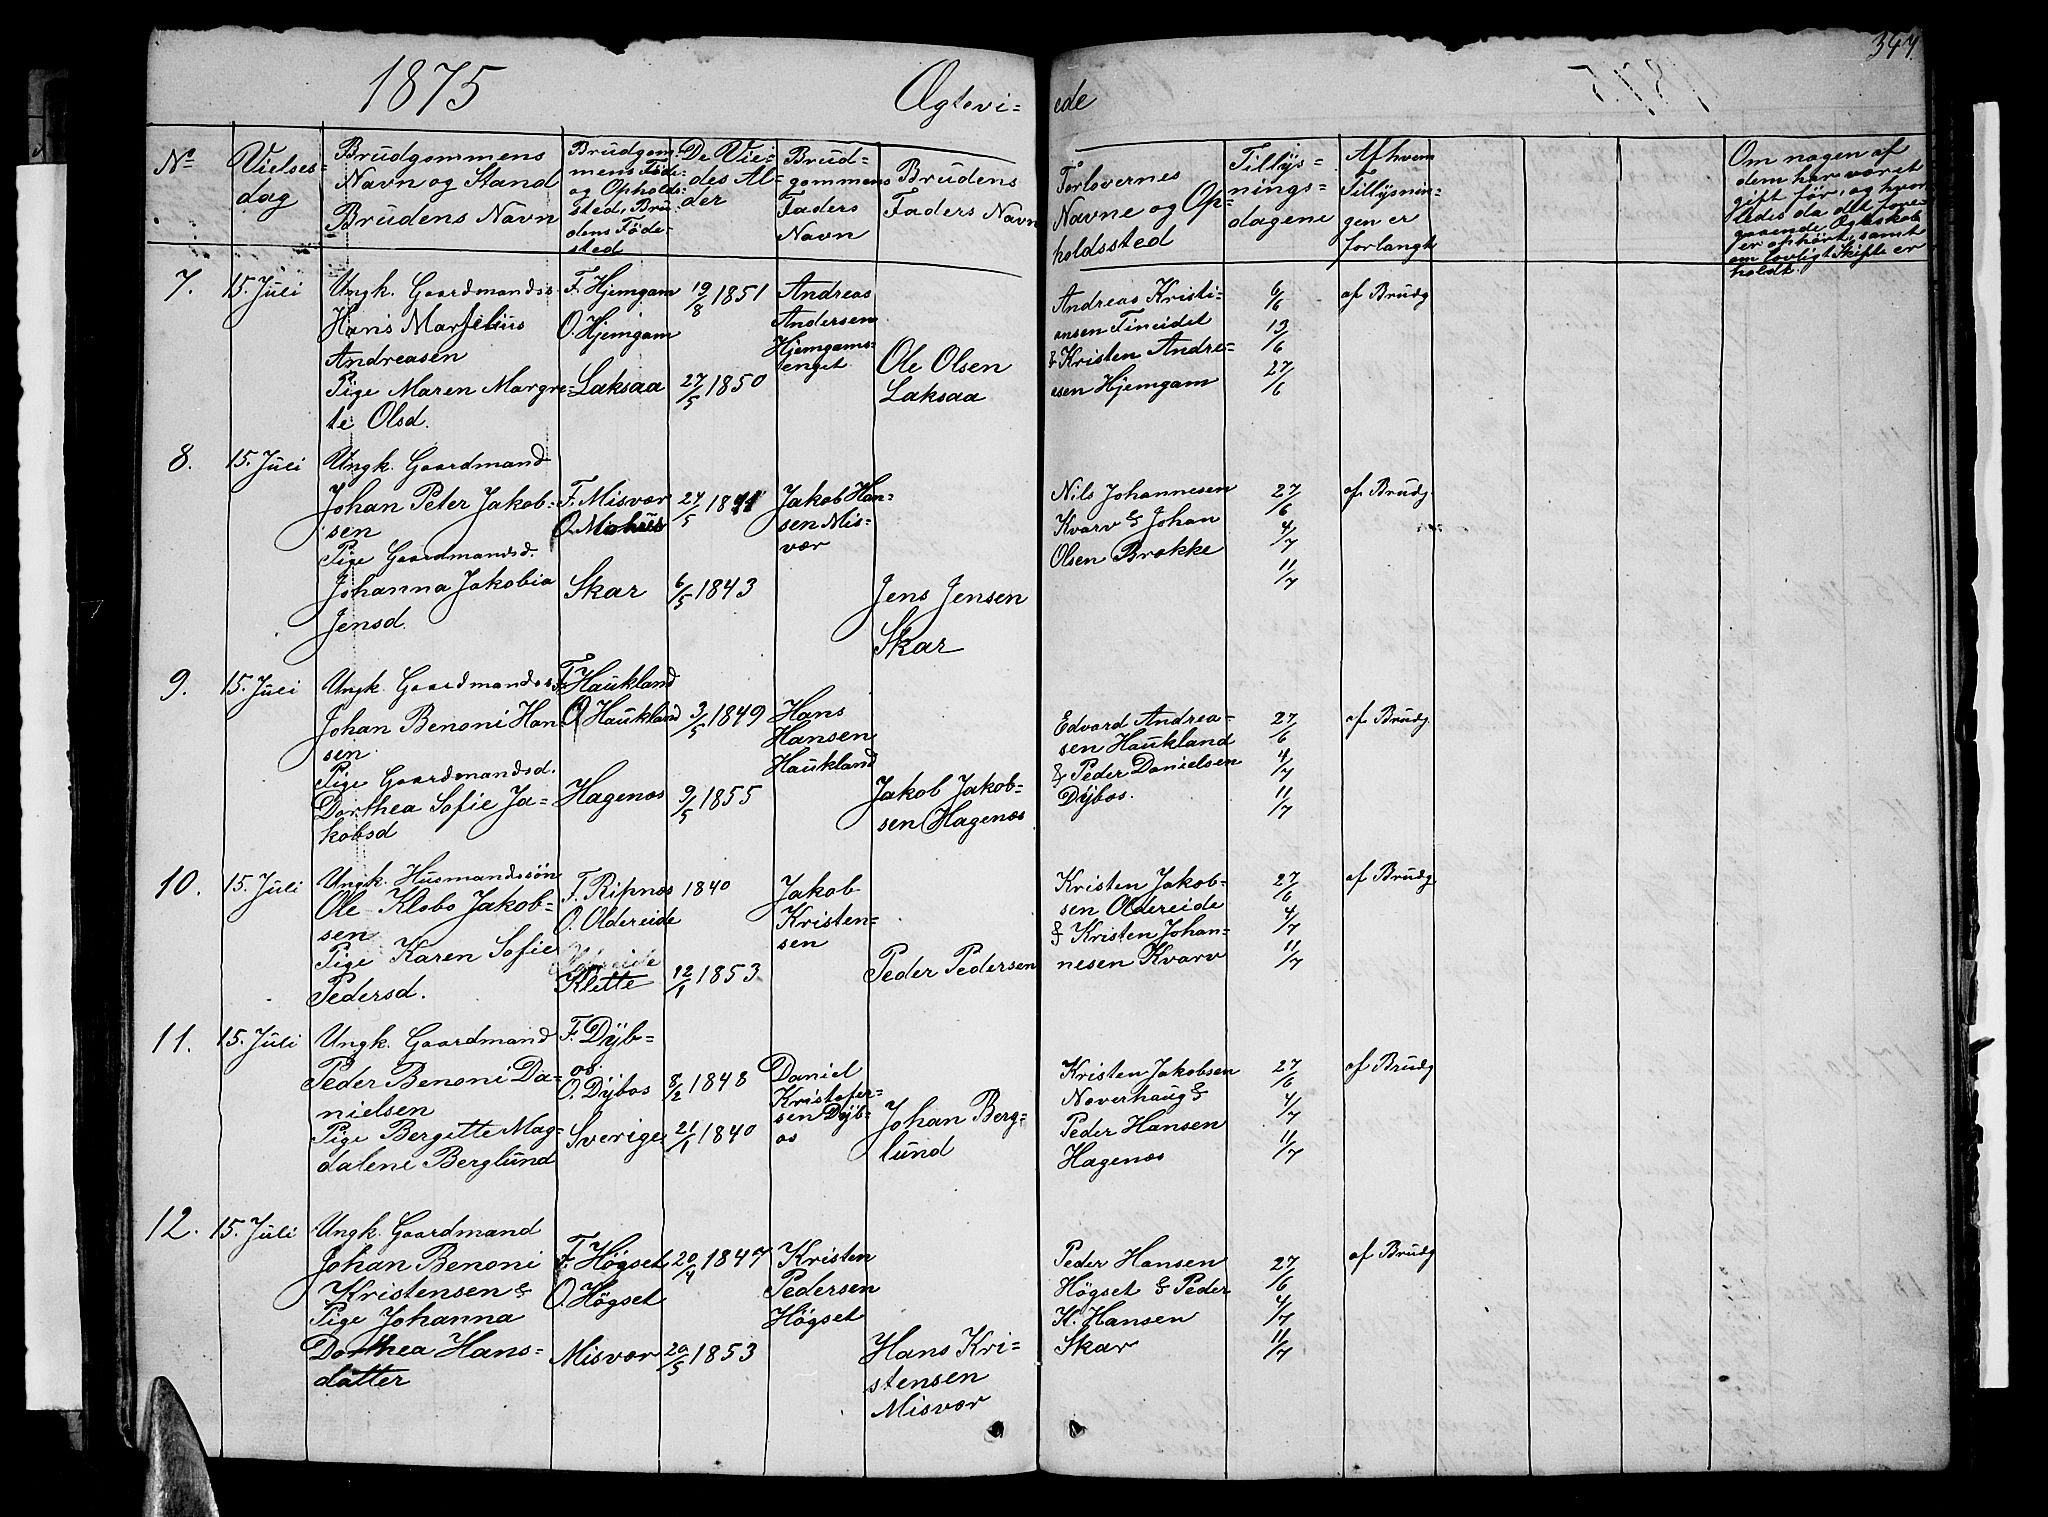 1875
Ægtevi=
ede
347.
No
Vielses-
dag
Brudgommens
Navn og Stand
Brudens Navn
Brudgom-
mens Föde
og Opholds-
sted, Bru
dens Föde-
sted
De Vie=
des Al-
der
Brud=
gommens
Faders
Navn
Brudens
Faders Navn
Forlovernes
Navne og Op-
holdssted
Tillÿs=
nings=
dagene
Af hvem
Tillÿsnin-
gen er
forlangt
Om nogen af
dem har været
gift før, og hvor
ledes da det fore-
gaaende Ægteskab
er ophørt, samt
om lovligt Skifte er
holdt.
7.
15. Juli
Ungk. Gaardmandss
Hans
Andreasen
Pige Maren Margre-
te Olsd.
F. Hjemgam
O. Hjemgam
Laksaa
19/8 1851
27/5 1850
Andreas
Andersen
Hjemgams-
enget
Ole Olsen
Laksaa
Andreas Kristi-
ansen Fineidet
& Kristen Andre-
esen Hjemgam
6/6
13/6
27/6
af Brudg
8.
15. Juli
Ungk. Gaardmand
Johan Peter Jakob-
sen
Pige Gaardmandsd.
Johanna Jakobia
Jensd.
F. Misvær
O. Mohus
Skar
27/5
6/5 1843
Jakob Han-
sen Mis-
vær
Jens Jensen
Skar
Nils Johannesen
Kvarv & Johan
Olsen Brække
27/6
4/7
11/7
af Brudg.
9.
15. Juli
Ungk. Gaardmandss
Johan Benoni Han
sen
Pige Gaardmandsd.
Dorthea Sofie Ja-
kobsd
F. Haukland
O. Haukland
Hagenæs
3/5 1849
9/5 1855
Hans
Hansen
Haukland
Jakob Jakob-
sen Hagenæs
Edvard Andrea-
sen Haukland
& Peder Danielsen
Dÿbos.
27/6
4/7
11/7
af Brudg
10.
15. Juli
Ungk. Husmandssön
Ole Klæbo Jakob-
sen
Pige Karen Sofie
Pedersd.
F. Ripnæs
O. Oldereide
Klette
1840
12/1 1853
Jakob
Kristen=
sen
Peder Pedersen
Kristen Jakob-
sen Oldereide
& Kristen Johan-
nesen Kvarv
27/6
4/7
11/7
af Brudg
11.
15. Juli
Ungk. Gaardmand
Peder Benoni Da-
nielsen
Pige Bergitte Mag-
dalene Berglund
F. Dÿb=
os.
O. Dÿbos
Sverige
8/2 1848
21/1 1840
Daniel
Kristofer-
sen Dÿb-
os
Johan Berg-
lund
Kristen Jakobsen
Næverhaug &
Peder Hansen
Hagenæs
27/6
4/7
11/7
af Brudg
12.
15. Juli
Ungk. Gaardmand
Johan Benoni
Kristensen &
Pige Johanna
Dorthea Hans=
datter
F. Högset
O. Högset
Misvær
20/4 1847
20/5 1853
Kristen
Pedersen
Högset
Hans Kri-
stensen
Misvær
Peder Hansen
Högset & Peder
K. Hansen
Skar
27/6
4/7
11/7
af Brudg